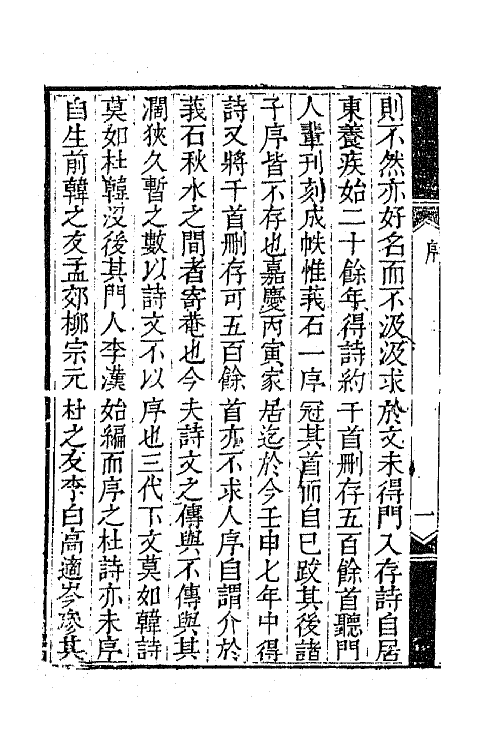 序
一
則不然亦好名而不汲汲求於文未得門入存詩自居
東養疾始二十餘年得詩約千首刪存五百餘首聽門
人輩刊刻成帙惟莪石一序冠其首而自已跋其後諸
子序皆不存也嘉慶丙寅家居迄於今壬申七年中得
詩又將千首刪存可五百餘首亦不求人序自謂介於
莪石秋水之間者寄菴也今夫詩文之傳與不傳與其
濶狹久暫之數以詩文不以序也三代下文莫如韓詩
莫如杜韓沒後其門人李漢始編而序之杜詩亦未序
自生前韓之友孟郊柳宗元杜之友李白高適岑參其